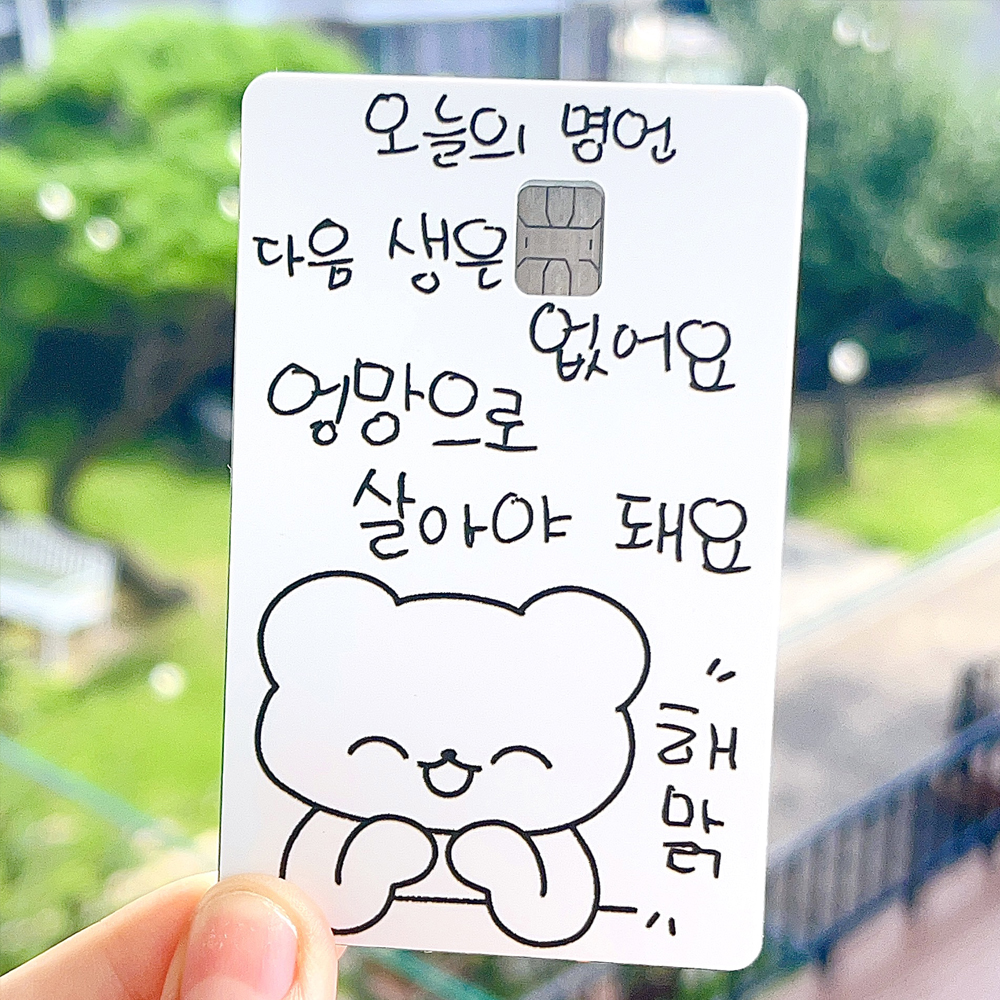 오늘의 명언
다음 생은
없어요
엉망으로
살아야 돼요
해
맑